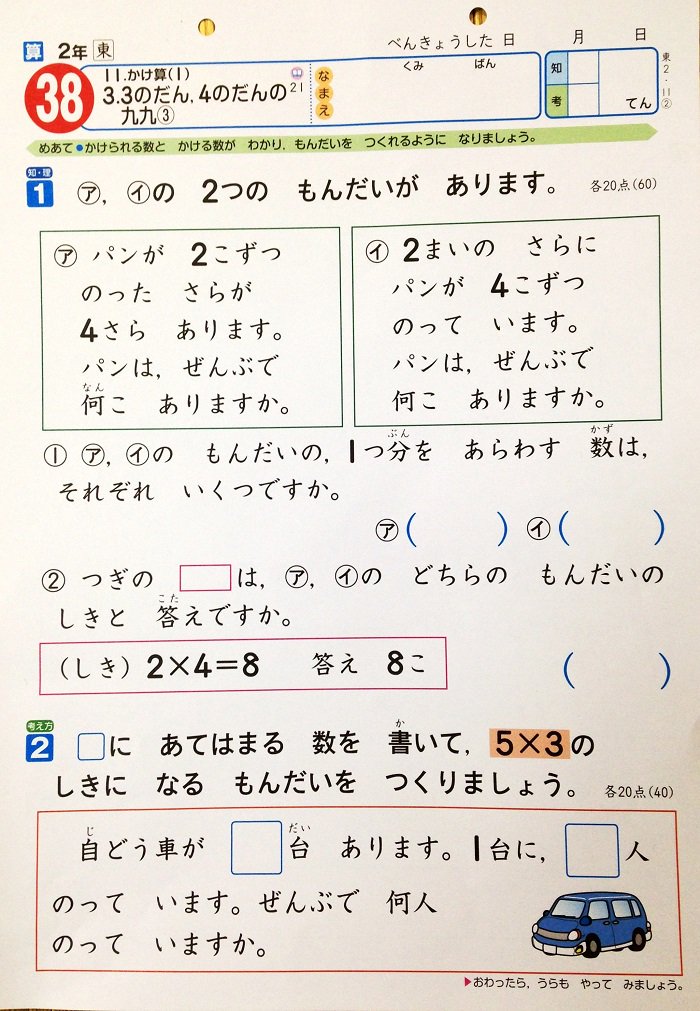 算 2年 東
べんきょうした日 月 日
38
11.かけ算(1)
3.3のだん,4のだんの
九九③
21
なまえ
くみ ばん
知
考
てん
東2・11②
めあて●かけられる数と かける数が わかり,もんだいを つくれるように なりましょう。
知・理
1 ㋐,㋑の 2つの もんだいが あります。 各20点(60)
㋐ パンが 2こずつ
のった さらが
4さら あります。
パンは,ぜんぶで
なん
何こ ありますか。
㋑ 2まいの さらに
パンが 4こずつ
のって います。
パンは,ぜんぶで
何こ ありますか。
ぶん かず
① ㋐,㋑の もんだいの,1つ分を あらわす 数は,
それぞれ いくつですか。
㋐( ) ㋑( )
② つぎの □は,㋐,㋑の どちらの もんだいの
こた
しきと 答えですか。
(しき)2×4=8 答え 8こ ( )
考え方
か
2 □に あてはまる 数を 書いて,5×3の
しきに なる もんだいを つくりましょう。 各20点(40)
じ だい
自どう車が □台 あります。1台に,□人
のって います。ぜんぶで 何人
のって いますか。
▶おわったら,うらも やって みましょう。